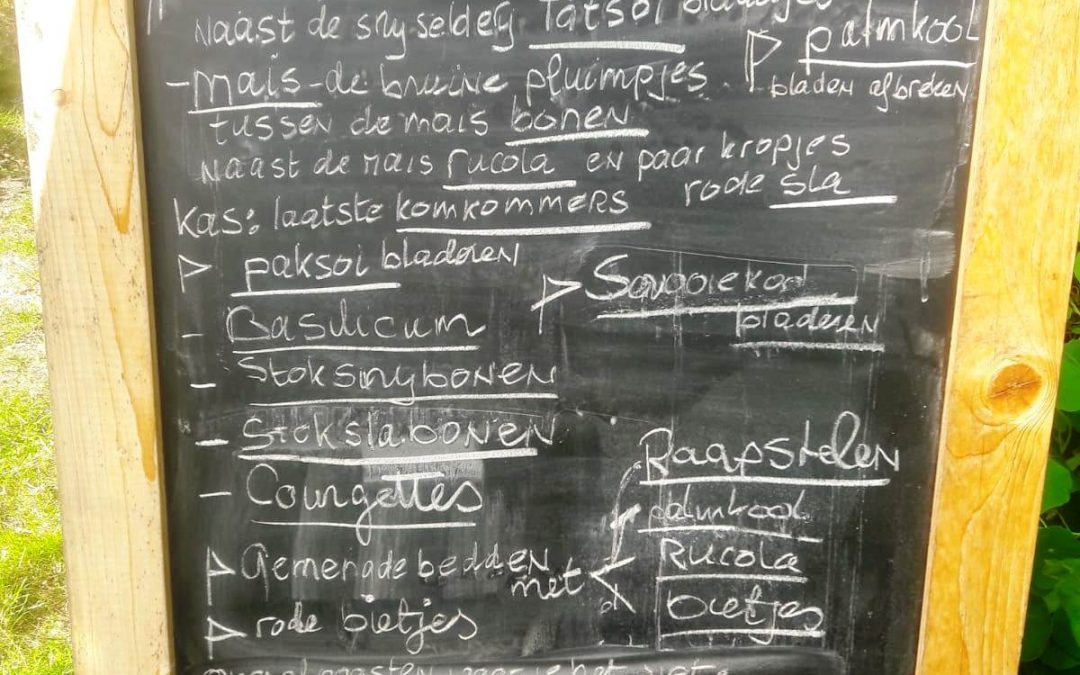 Naast de snyselderij Tatsoi blaadjes
▷ palmkool
bladen afbreken
- mais - de bruine pluimpjes
tussen de mais bonen
Naast de mais rucola en paar kropjes
rode sla
Kas: laatste komkommers
▷ paksoi bladeren
▷ Savooiekool
bladeren
- Basilicum
- Stoksnybonen
- Stokslabonen
- Courgettes
▷ Gemengde bedden met
Raapstelen
palmkool
Rucola
bietjes
▷ rode bietjes